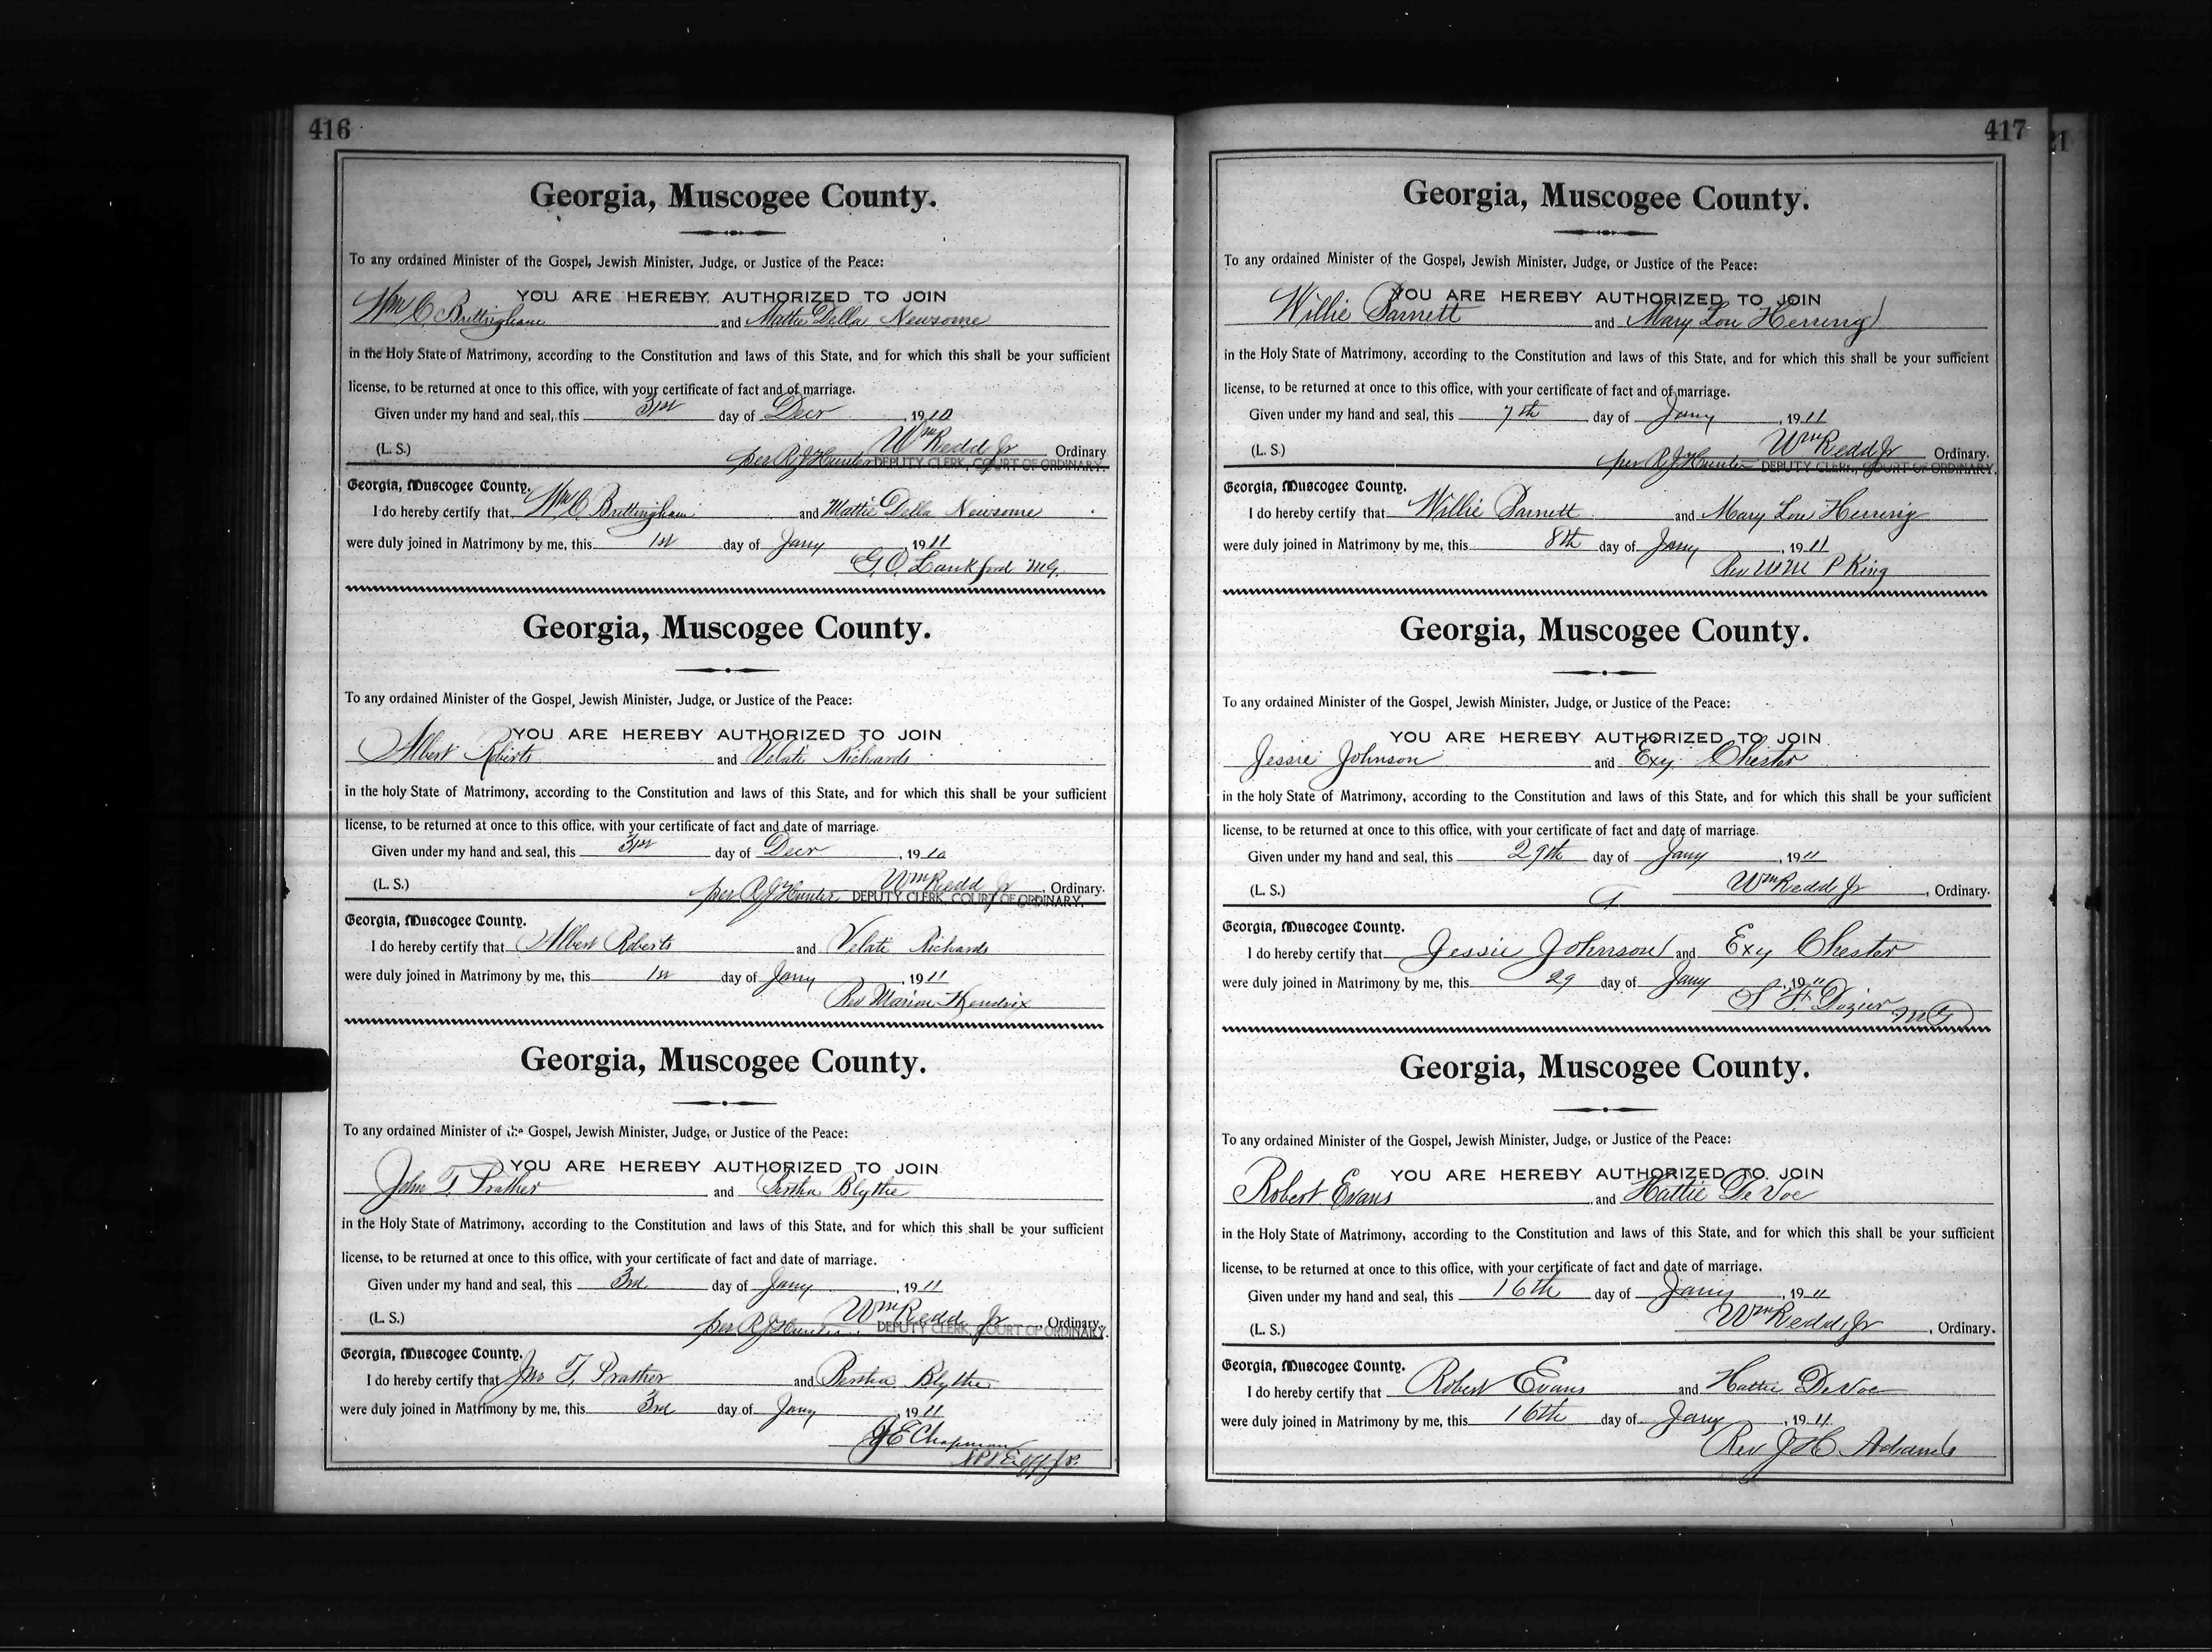 416
Georgia, Muscogee County.
To any ordained Minister of the Gospel, Jewish Minister, Judge, or Justice of the Peace:
YOU ARE HEREBY AUTHORIZED TO JOIN
Wm C. Brittingham and Mattie Della Newsome
in the Holy State of Matrimony, according to the Constitution and laws of this State, and for which this shall be your sufficient
license, to be returned at once to this office, with your certificate of fact and of marriage.
Given under my hand and seal, this 31st day of Decr, 1910
(L. S.) Wm Redd Jr Ordinary
per R J Hunter DEPUTY CLERK, COURT OF ORDINARY.
Georgia, Muscogee County.
I do hereby certify that Wm C. Brittingham and Mattie Della Newsome
were duly joined in Matrimony by me, this 1st day of Jany, 1911
G. O. Lankford M.G.
Georgia, Muscogee County.
To any ordained Minister of the Gospel, Jewish Minister, Judge, or Justice of the Peace:
YOU ARE HEREBY AUTHORIZED TO JOIN
Albert Roberts and Velati Richards
in the holy State of Matrimony, according to the Constitution and laws of this State, and for which this shall be your sufficient
license, to be returned at once to this office, with your certificate of fact and date of marriage.
Given under my hand and seal, this 31st day of Decr, 1910
(L. S.) Wm Redd Jr, Ordinary.
per R J Hunter DEPUTY CLERK, COURT OF ORDINARY.
Georgia, Muscogee County.
I do hereby certify that Albert Roberts and Velati Richards
were duly joined in Matrimony by me, this 1st day of Jany, 1911
Rev Marion Hendrix
Georgia, Muscogee County.
To any ordained Minister of the Gospel, Jewish Minister, Judge, or Justice of the Peace:
YOU ARE HEREBY AUTHORIZED TO JOIN
John T. Prather and Bertha Blythe
in the Holy State of Matrimony, according to the Constitution and laws of this State, and for which this shall be your sufficient
license, to be returned at once to this office, with your certificate of fact and date of marriage.
Given under my hand and seal, this 3rd day of Jany, 1911
(L. S.) Wm Redd Jr, Ordinary.
per R J Hunter DEPUTY CLERK, COURT OF ORDINARY.
Georgia, Muscogee County.
I do hereby certify that Jno T. Prather and Bertha Blythe
were duly joined in Matrimony by me, this 3rd day of Jany, 1911
J E Chapman
417
Georgia, Muscogee County.
To any ordained Minister of the Gospel, Jewish Minister, Judge, or Justice of the Peace:
YOU ARE HEREBY AUTHORIZED TO JOIN
Willie Barnett and Mary Lou Herring
in the Holy State of Matrimony, according to the Constitution and laws of this State, and for which this shall be your sufficient
license, to be returned at once to this office, with your certificate of fact and of marriage.
Given under my hand and seal, this 7th day of Jany, 1911
(L. S.) Wm Redd Jr Ordinary.
per R J Hunter DEPUTY CLERK, COURT OF ORDINARY.
Georgia, Muscogee County.
I do hereby certify that Willie Barnett and Mary Lou Herring
were duly joined in Matrimony by me, this 8th day of Jany, 1911
Rev WM P King
Georgia, Muscogee County.
To any ordained Minister of the Gospel, Jewish Minister, Judge, or Justice of the Peace:
YOU ARE HEREBY AUTHORIZED TO JOIN
Jessie Johnson and Exy Chester
in the holy State of Matrimony, according to the Constitution and laws of this State, and for which this shall be your sufficient
license, to be returned at once to this office, with your certificate of fact and date of marriage.
Given under my hand and seal, this 29th day of Jany, 1911
(L. S.) Wm Redd Jr, Ordinary.
Georgia, Muscogee County.
I do hereby certify that Jessie Johnson and Exy Chester
were duly joined in Matrimony by me, this 29 day of Jany, 1911
S. F. Dozier MG
Georgia, Muscogee County.
To any ordained Minister of the Gospel, Jewish Minister, Judge, or Justice of the Peace:
YOU ARE HEREBY AUTHORIZED TO JOIN
Robert Evans and Hattie DeVoe
in the Holy State of Matrimony, according to the Constitution and laws of this State, and for which this shall be your sufficient
license, to be returned at once to this office, with your certificate of fact and date of marriage.
Given under my hand and seal, this 16th day of Jany, 1911
(L. S.) Wm Redd Jr, Ordinary.
Georgia, Muscogee County.
I do hereby certify that Robert Evans and Hattie DeVoe
were duly joined in Matrimony by me, this 16th day of Jany, 1911
Rev J H Adams
21